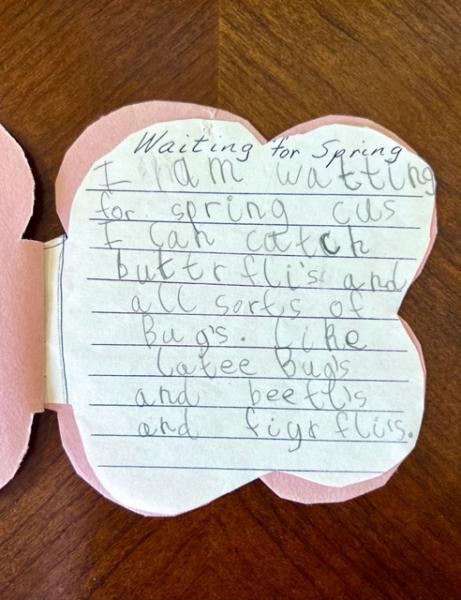 Waiting for Spring
I am watting
for spring cus
I can catch
buttrfli's and
all sorts of
Bug's. Like
Latee Bug's
and beetl's
and fiyrfli's.